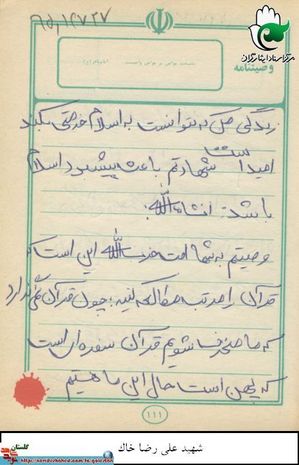 ۶۵،۱۴۷۲۷
مرکز اسناد ایثارگران
وصیتنامه
زندگی من که نتوانست به اسلام خدمتی بکند
امید است شهادتم باعث پیشبرد اسلام
باشد. انشاءالله.
وصیتم به شما امت حزب الله این است که
قرآن را مرتب مطالعه کنید، چون قرآن نمی‌گذارد
که ما منحرف شویم قرآن سفره‌ای است
که پهن است حال این ما هستیم
۱۱۱
گلستان
شهید علی رضا خاك